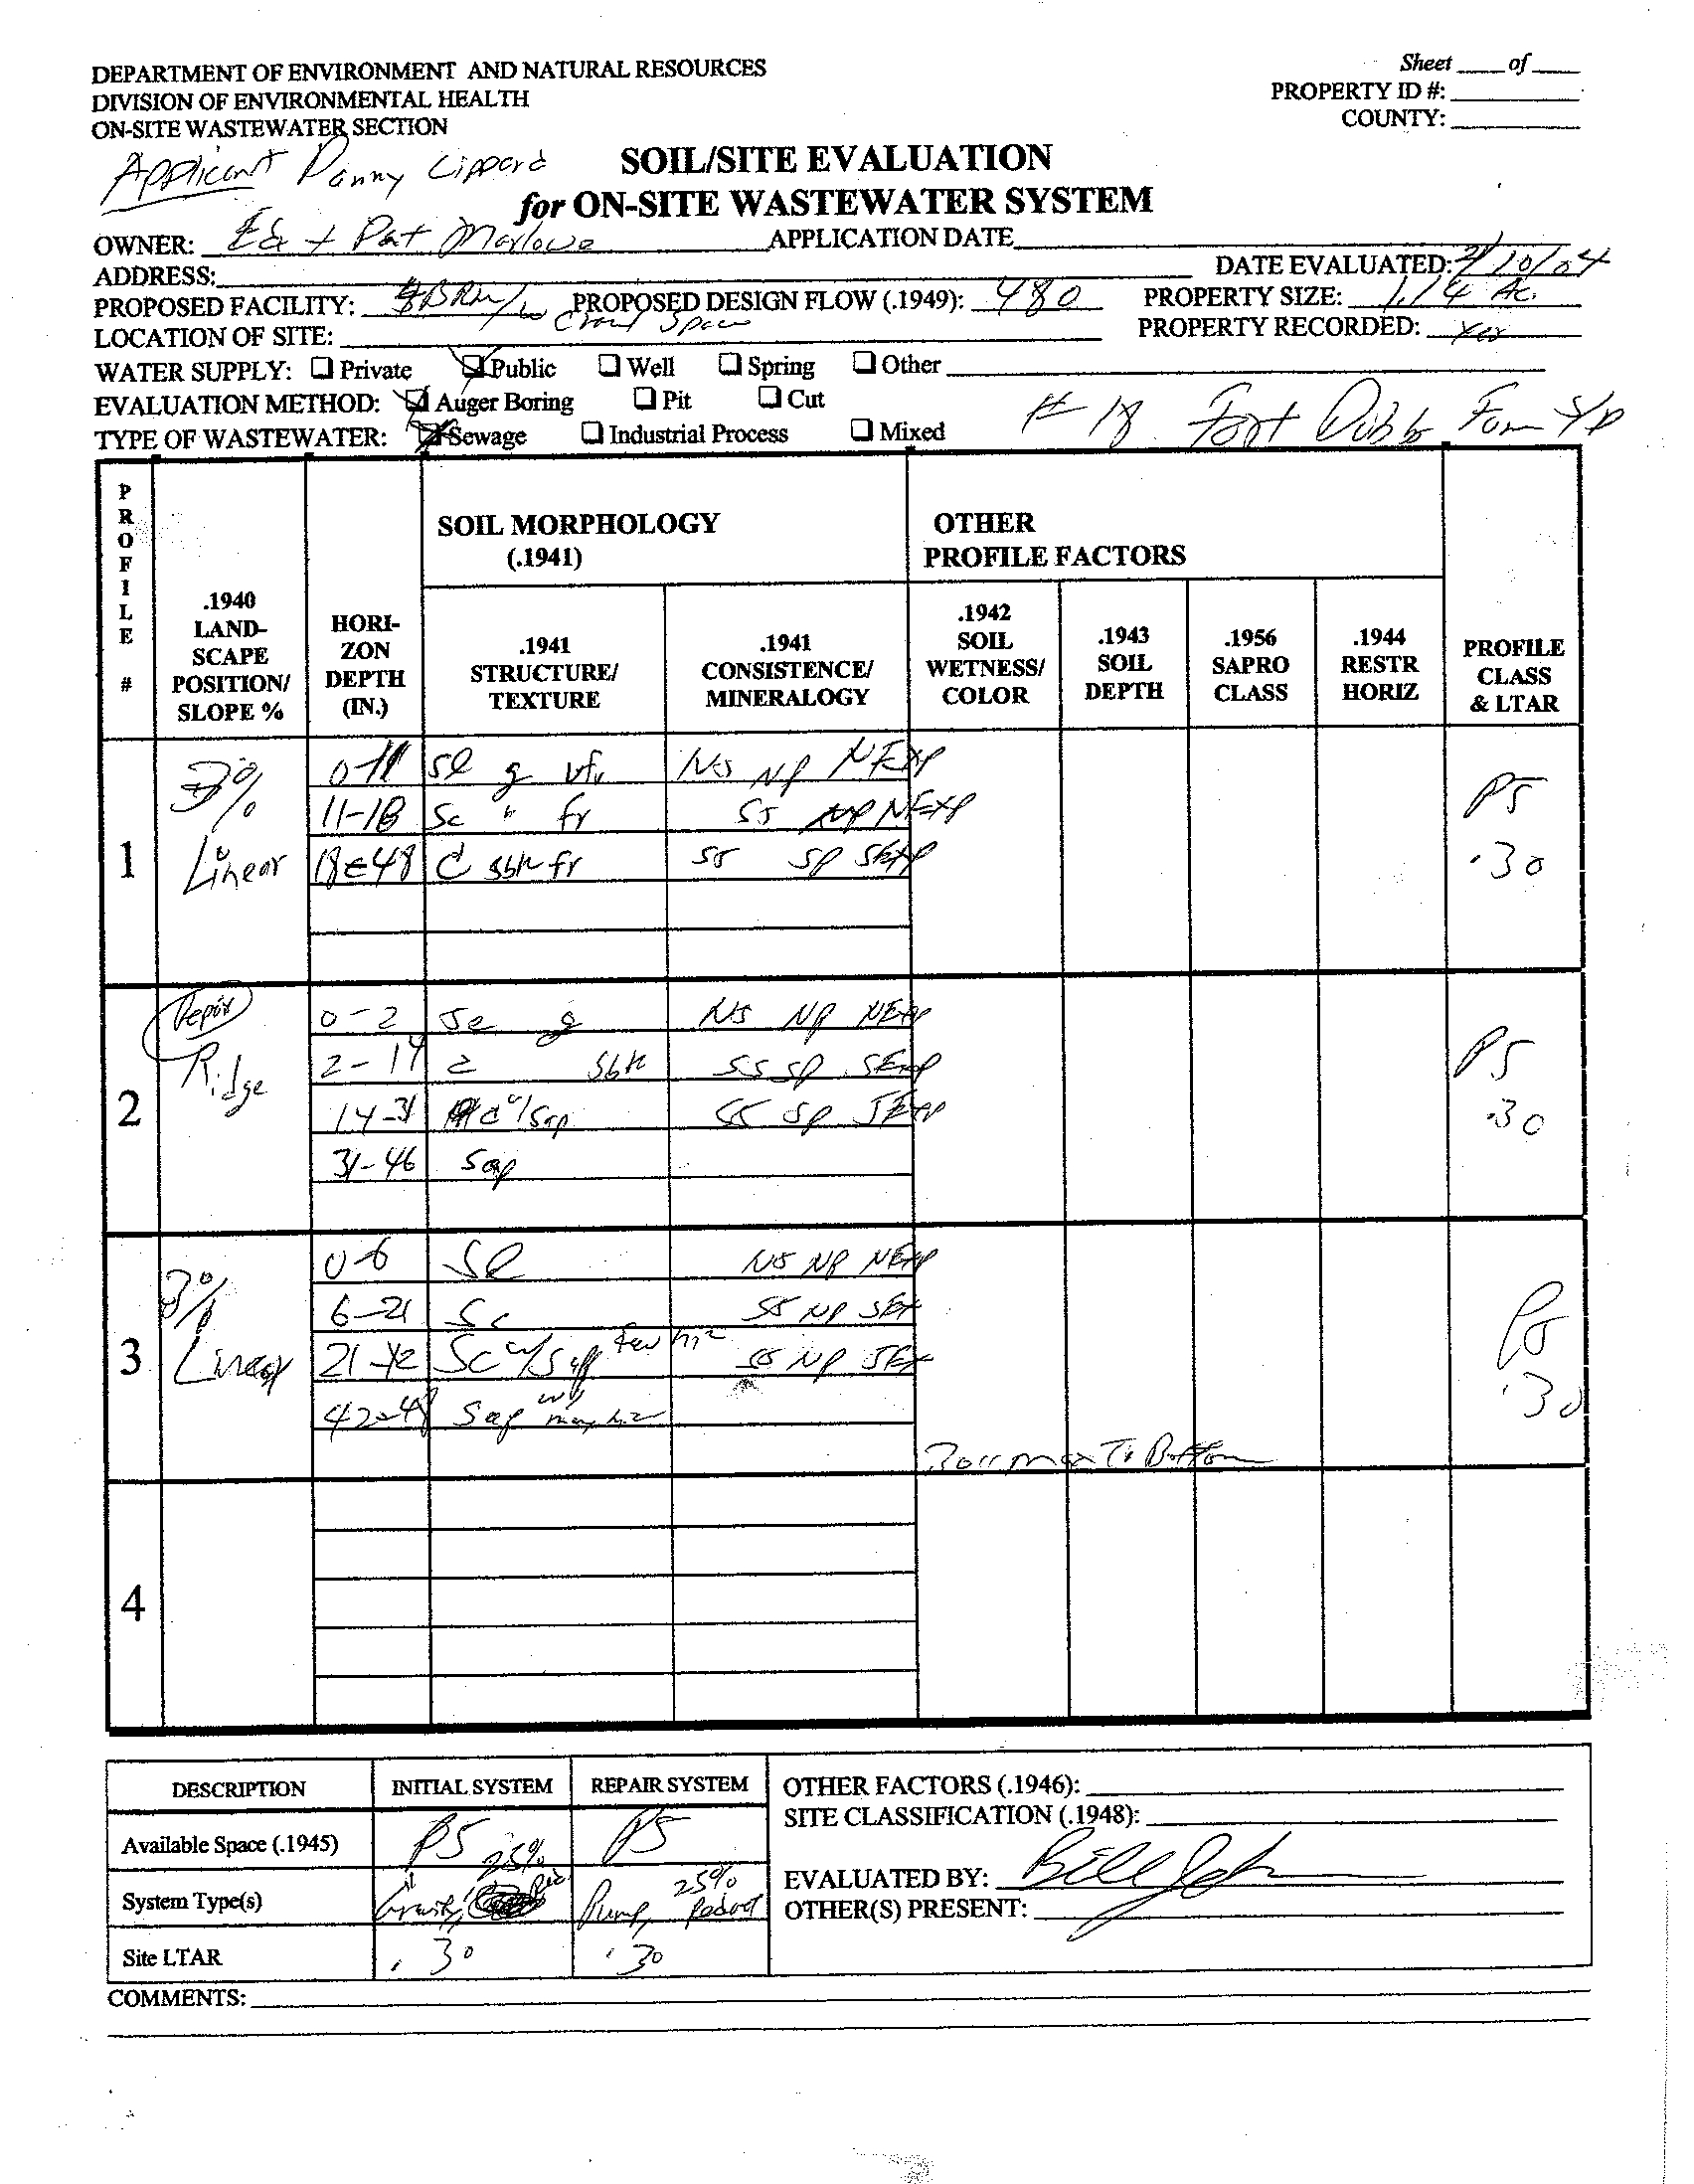 Sheet ____ of ____
DEPARTMENT OF ENVIRONMENT AND NATURAL RESOURCES
PROPERTY ID #:
DIVISION OF ENVIRONMENTAL HEALTH
COUNTY:
ON-SITE WASTEWATER SECTION
Applicant Danny Lippard
SOIL/SITE EVALUATION
for ON-SITE WASTEWATER SYSTEM
OWNER: Ed + Pat Marlowe APPLICATION DATE
ADDRESS: DATE EVALUATED: /10/04
PROPOSED FACILITY: BRM/w Crawl Space PROPOSED DESIGN FLOW (.1949): 480 PROPERTY SIZE: 1.14 Ac.
LOCATION OF SITE: PROPERTY RECORDED: yes
WATER SUPPLY: Private Public Well Spring Other
EVALUATION METHOD: Auger Boring Pit Cut
TYPE OF WASTEWATER: Sewage Industrial Process Mixed
# 18 Fort Dobbs Farm S/D
PROFILE #
.1940 LAND-SCAPE POSITION/ SLOPE %
HORI-ZON DEPTH (IN.)
SOIL MORPHOLOGY (.1941)
OTHER PROFILE FACTORS
.1941 STRUCTURE/ TEXTURE
.1941 CONSISTENCE/ MINERALOGY
.1942 SOIL WETNESS/ COLOR
.1943 SOIL DEPTH
.1956 SAPRO CLASS
.1944 RESTR HORIZ
PROFILE CLASS & LTAR
1 3% Linear PS .30
0-11 SL g vfr NS NP NEXP
11-18 Sc " fr SS NP NEXP
18-48 C sbk fr SS SP SEXP
2 Repair Ridge PS .30
0-2 SL g NS NP NEXP
2-14 C Sbk SS SP SEXP
14-31 C w/Sap SS SP SEXP
31-46 Sap
3 3% Linear PS .30
0-6 SL NS NP NEXP
6-21 Sc SS NP SEX
21-42 Sc w/Sap few SS NP SEX
42-48 Sap w/ many
30" max To Bottom
4
DESCRIPTION INITIAL SYSTEM REPAIR SYSTEM
Available Space (.1945) PS PS
System Type(s) Gravity 25% Red Pump, 25% Reduct
Site LTAR .30 .30
OTHER FACTORS (.1946):
SITE CLASSIFICATION (.1948):
EVALUATED BY: Bill
OTHER(S) PRESENT:
COMMENTS: